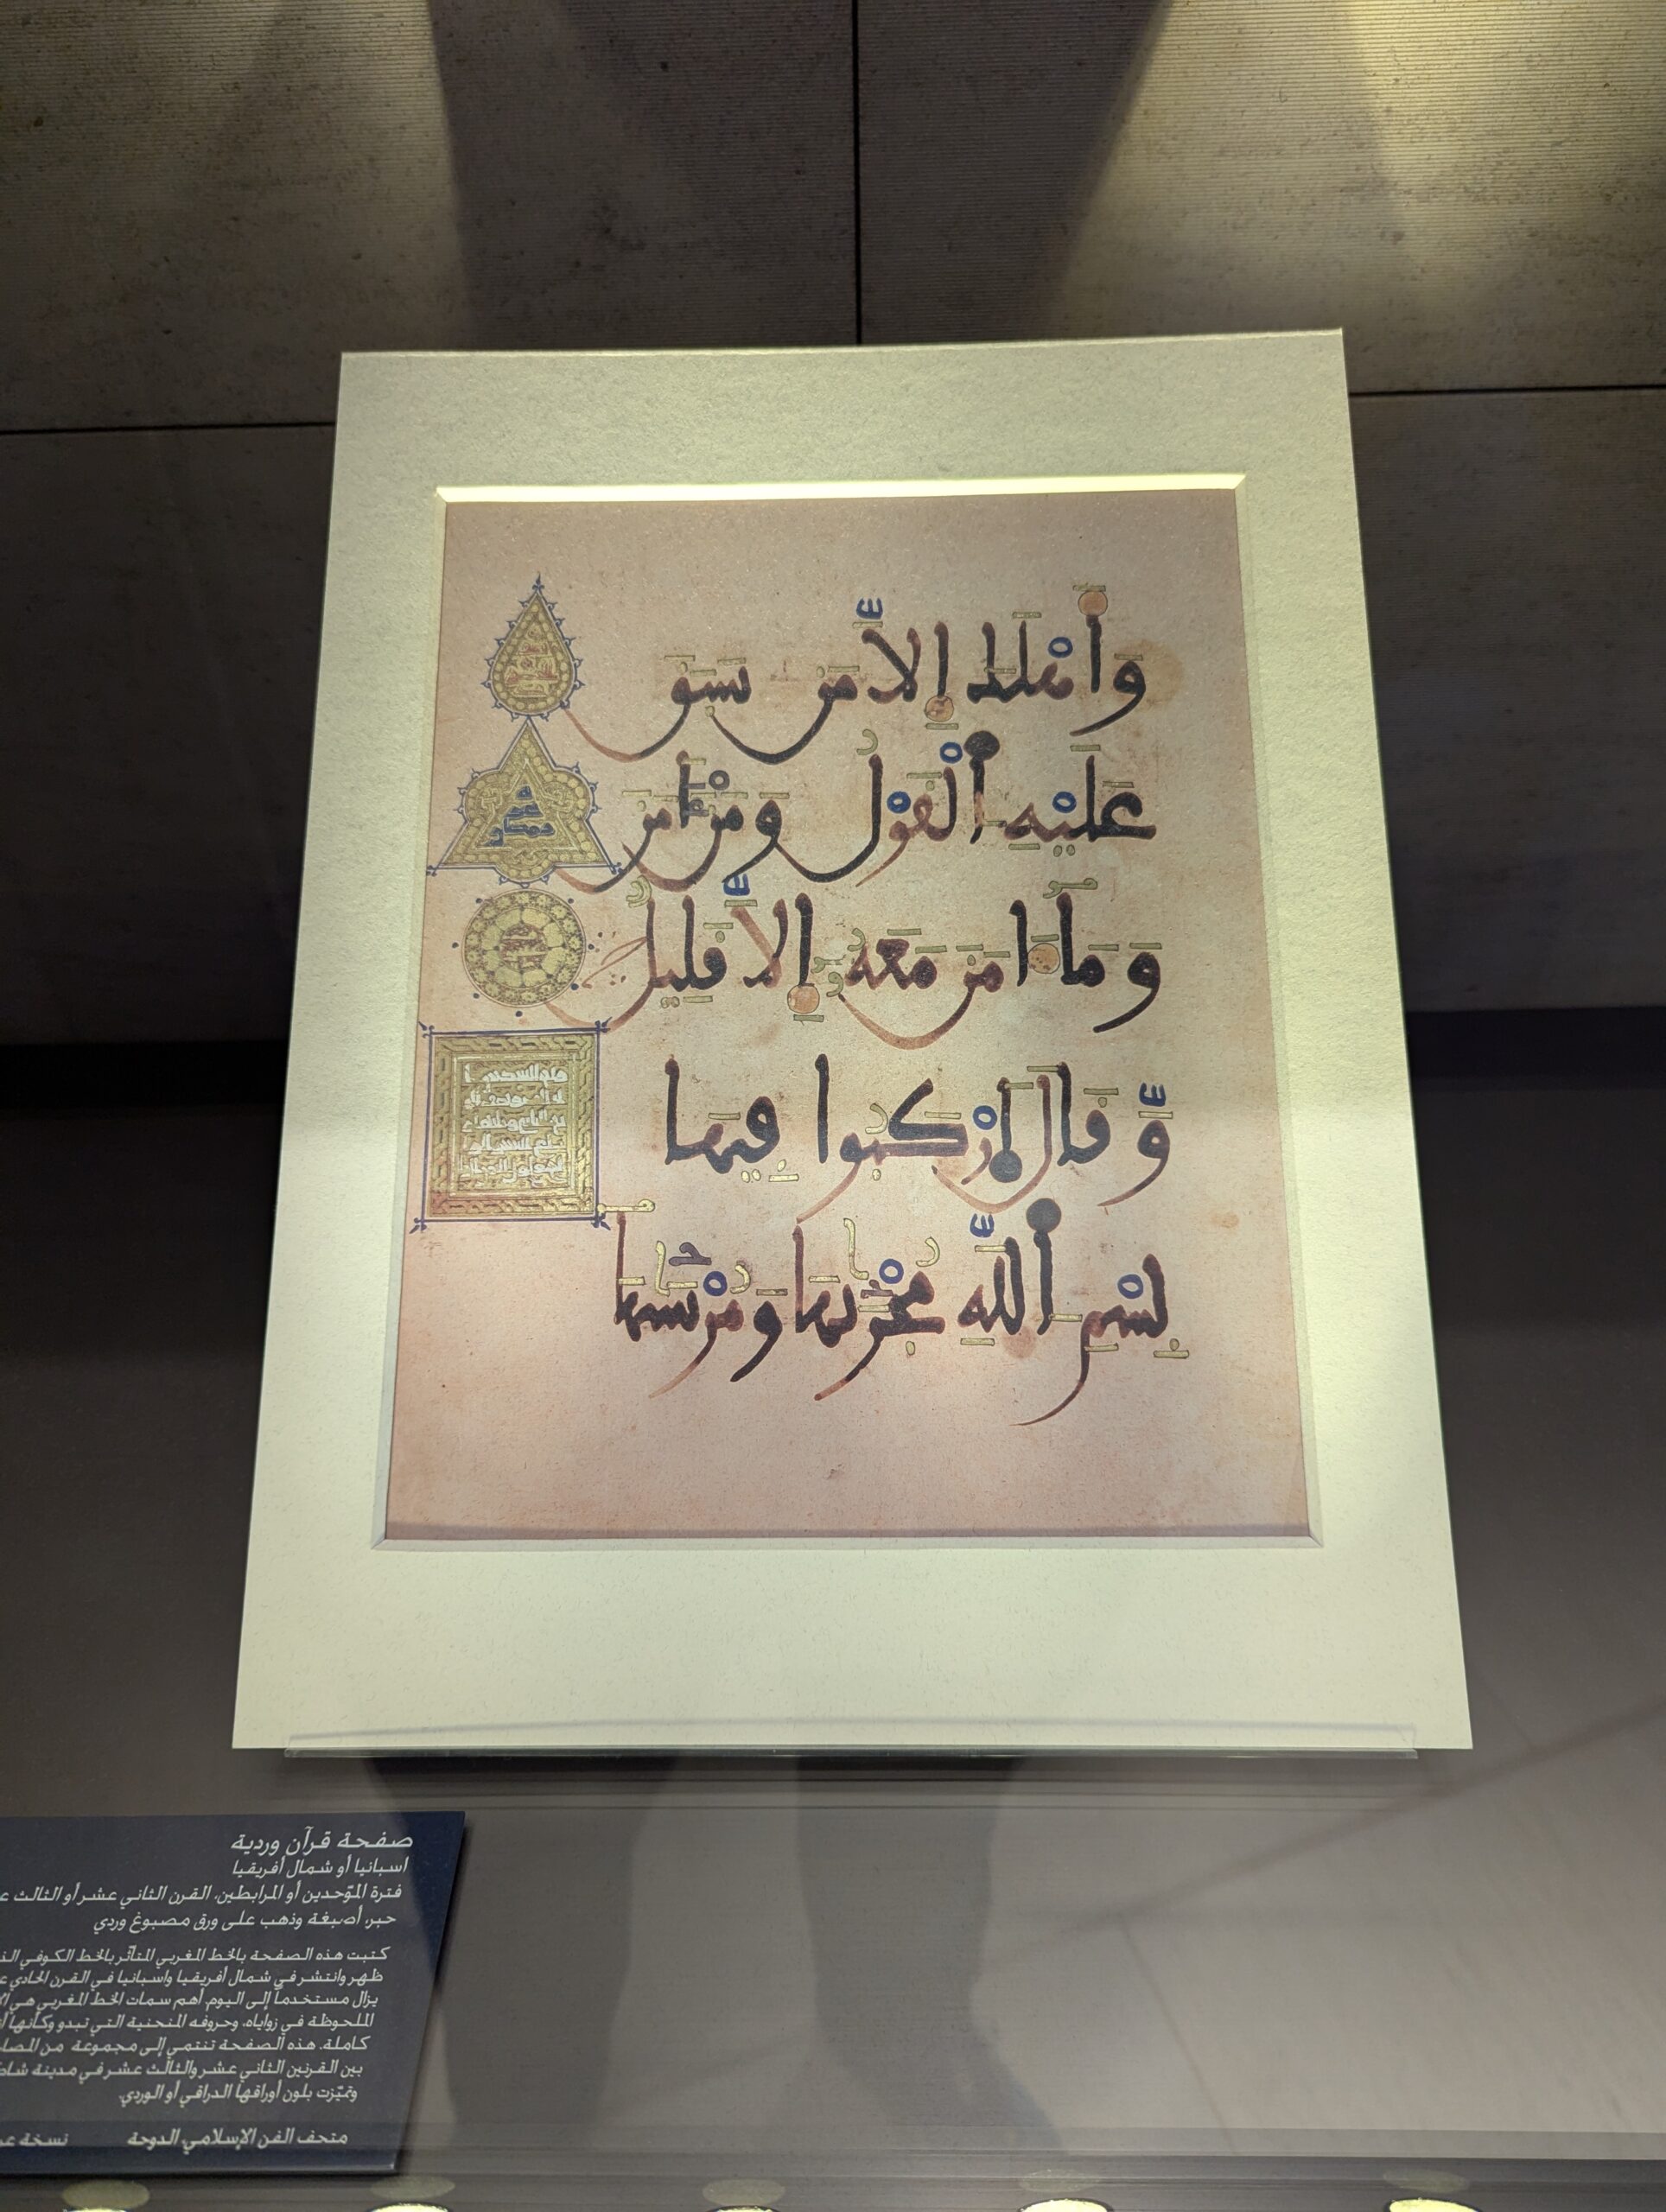 وَأَهْلَكَ إِلَّا مَن سَبَقَ
عَلَيْهِ ٱلْقَوْلُ وَمَنْ ءَامَنَ
وَمَآ ءَامَنَ مَعَهُۥٓ إِلَّا قَلِيلٌ
وَّقَالَ ٱرْكَبُوا فِيهَا
بِسْمِ ٱللَّهِ مُجْرَىٰهَا وَمُرْسَىٰهَآ
صفحة قرآن وردية
اسبانيا أو شمال أفريقيا
فترة الموّحدين أو المرابطين، القرن الثاني عشر أو الثالث
حبر، أصبغة وذهب على ورق مصبوغ وردي
كتبت هذه الصفحة بالخط المغربي المتأثّر بالخط الكوفي
ظهر وانتشر في شمال أفريقيا واسبانيا في القرن الحادي
يزال مستخدماً إلى اليوم. أهم سمات الخط المغربي هي
الملحوظة في زواياه، وحروفه المنحنية التي تبدو وكأنها
كاملة. هذه الصفحة تنتمي إلى مجموعة من
بين القرنين الثاني عشر والثالث عشر في مدينة
وتميّزت بلون أوراقها الدراقي أو الوردي.
متحف الفن الإسلامي، الدوحة نسخة